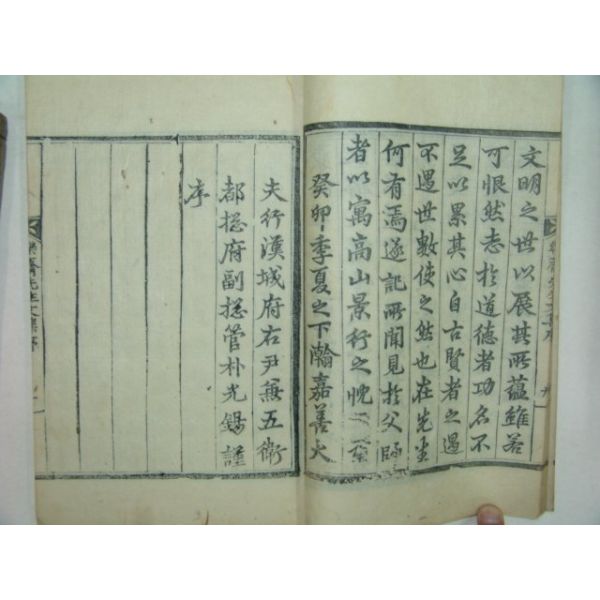 文明之世以展其所蘊雖若
可恨然志於道德者功名不
足以累其心自古賢者之遇
不遇世數使之然也在先生
何有焉遂記所聞見於父師
者以寓高山景行之忱云爾
癸卯季夏之下瀚嘉善大
夫行漢城府右尹兼五衛
都摠府副摠管朴光錫謹
序
樂齋先生文集序